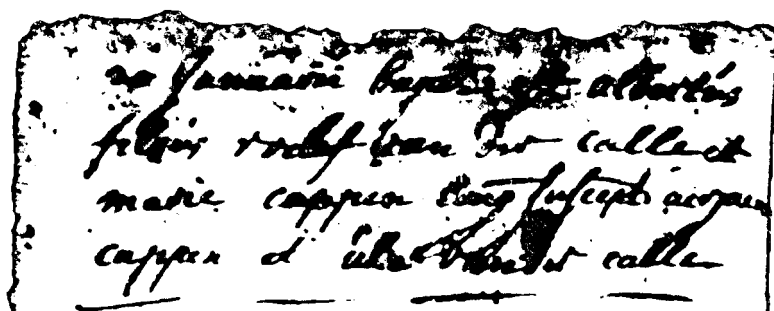 20 Januarii baptis est albertus
filius roelof van der calle et
marie cappen
cappen et van der calle